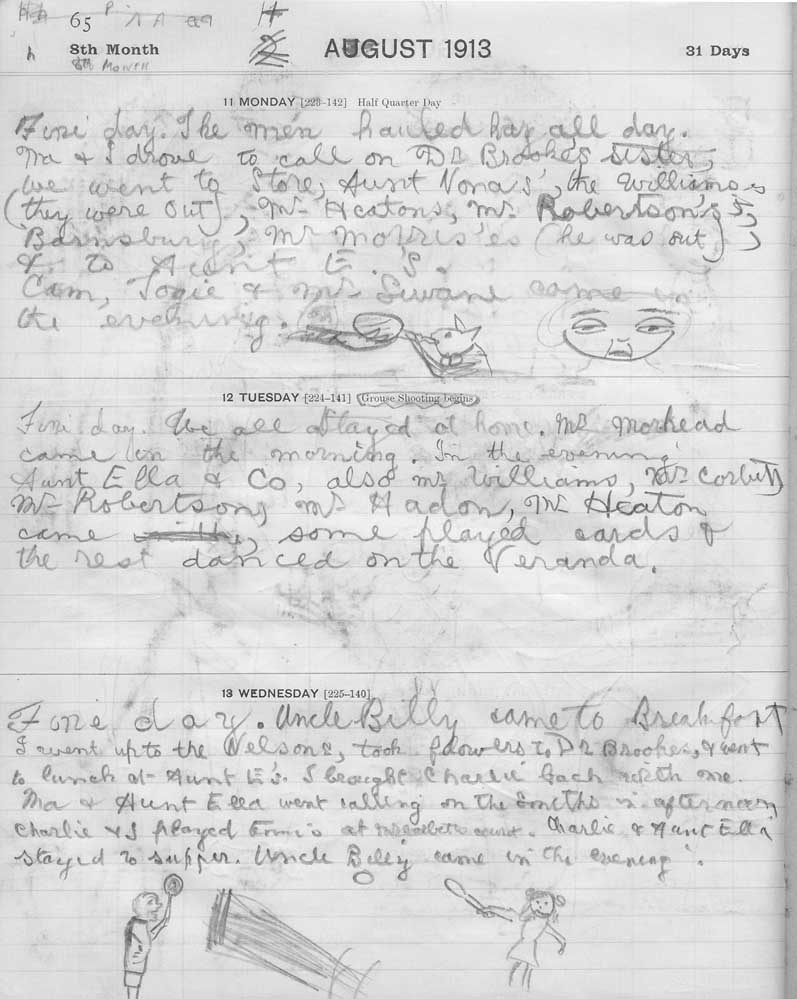 65
8th Month AUGUST 1913 31 Days
8th Month
11 MONDAY [223-142] Half Quarter Day
Fine day. The men hauled hay all day.
Ma & I drove to call on Dr Brooke's sister,
we went to Store, Aunt Nona's, the Williams's
(they were out), Mr Heatons, Mr Robertson's,
Barnsbury, Mr Morris'es (he was out)
& to Aunt E.'s.
Cam, Togie & Mr Swane came in
the evening.
12 TUESDAY [224-141] Grouse Shooting begins
Fine day. We all stayed at home. Mr Morkead
came in the morning. In the evening
Aunt Ella & Co, also Mr Williams, Mr Corbett,
Mr Robertson, Mr Hadon, Mr Heaton
came, some played cards &
the rest danced on the Veranda.
13 WEDNESDAY [225-140]
Fine day. Uncle Billy came to Breakfast
I went up to the Nelsons, took flowers to Dr Brookes, & went
to lunch at Aunt E's. I brought Charlie back with me.
Ma & Aunt Ella went calling on the Smiths in afternoon
Charlie & I played Tennis at court. Charlie & Aunt Ella
stayed to supper. Uncle Billy came in the evening.